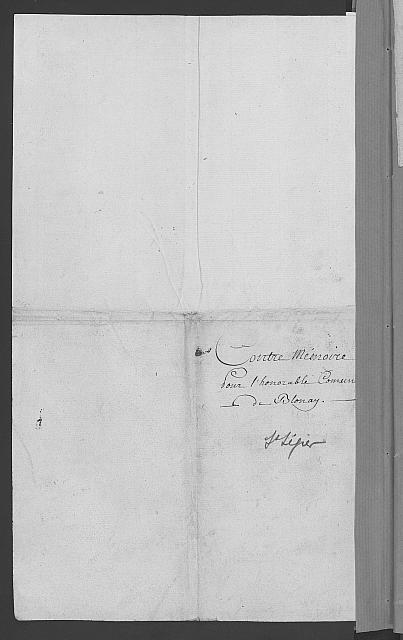 Contre Mémoire
Pour l'honorable Comun
de Blonay.
St Légier